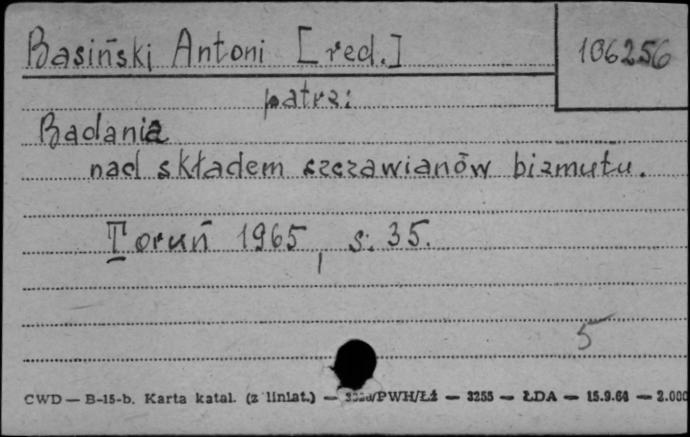 Basiński Antoni [red.]
106256
patrz:
Badania
nad składem szczawianów bizmutu.
Toruń 1965, s. 35.
5
CWD — B-15-b. Karta katal. (z liniat.) — /PWH/Łź — 3255 — ŁDA — 15.9.64 — 2.000